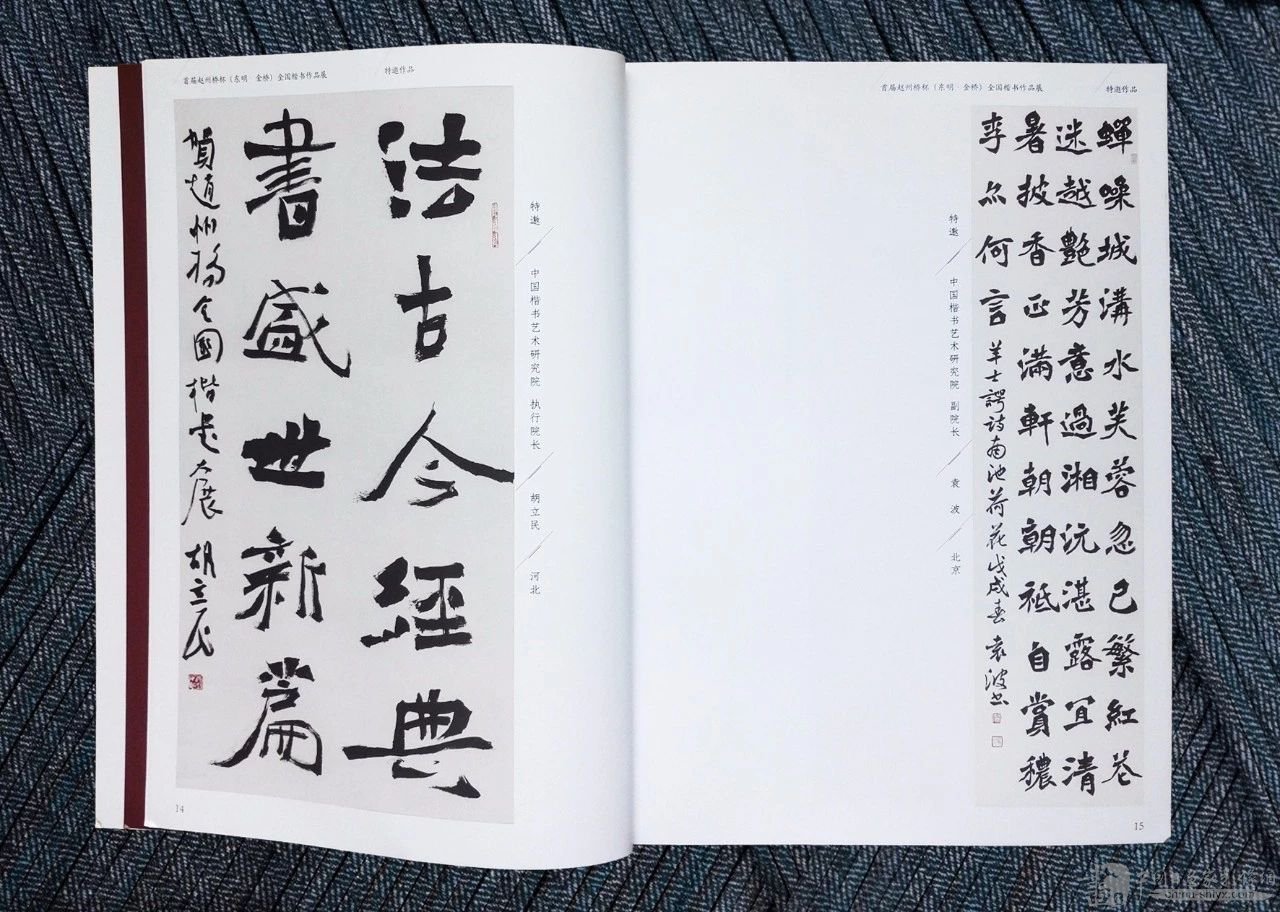 首届赵州桥杯（东明　金桥）全国楷书作品展
特邀作品
法古今經典
書盛世新篇
賀趙州橋全國楷書大展 胡立民
特邀 中国楷书艺术研究院 执行院长 胡立民 河北
14
首届赵州桥杯（东明　金桥）全国楷书作品展
特邀作品
蟬噪城溝水芙蓉忽已繁紅花
迷越艷芳意過湘沅湛露宜清
暑披香正滿軒朝朝祗自賞穠
李亦何言 羊士諤詩南池荷花戊戌春 袁波书
特邀 中国楷书艺术研究院 副院长 袁波 北京
15